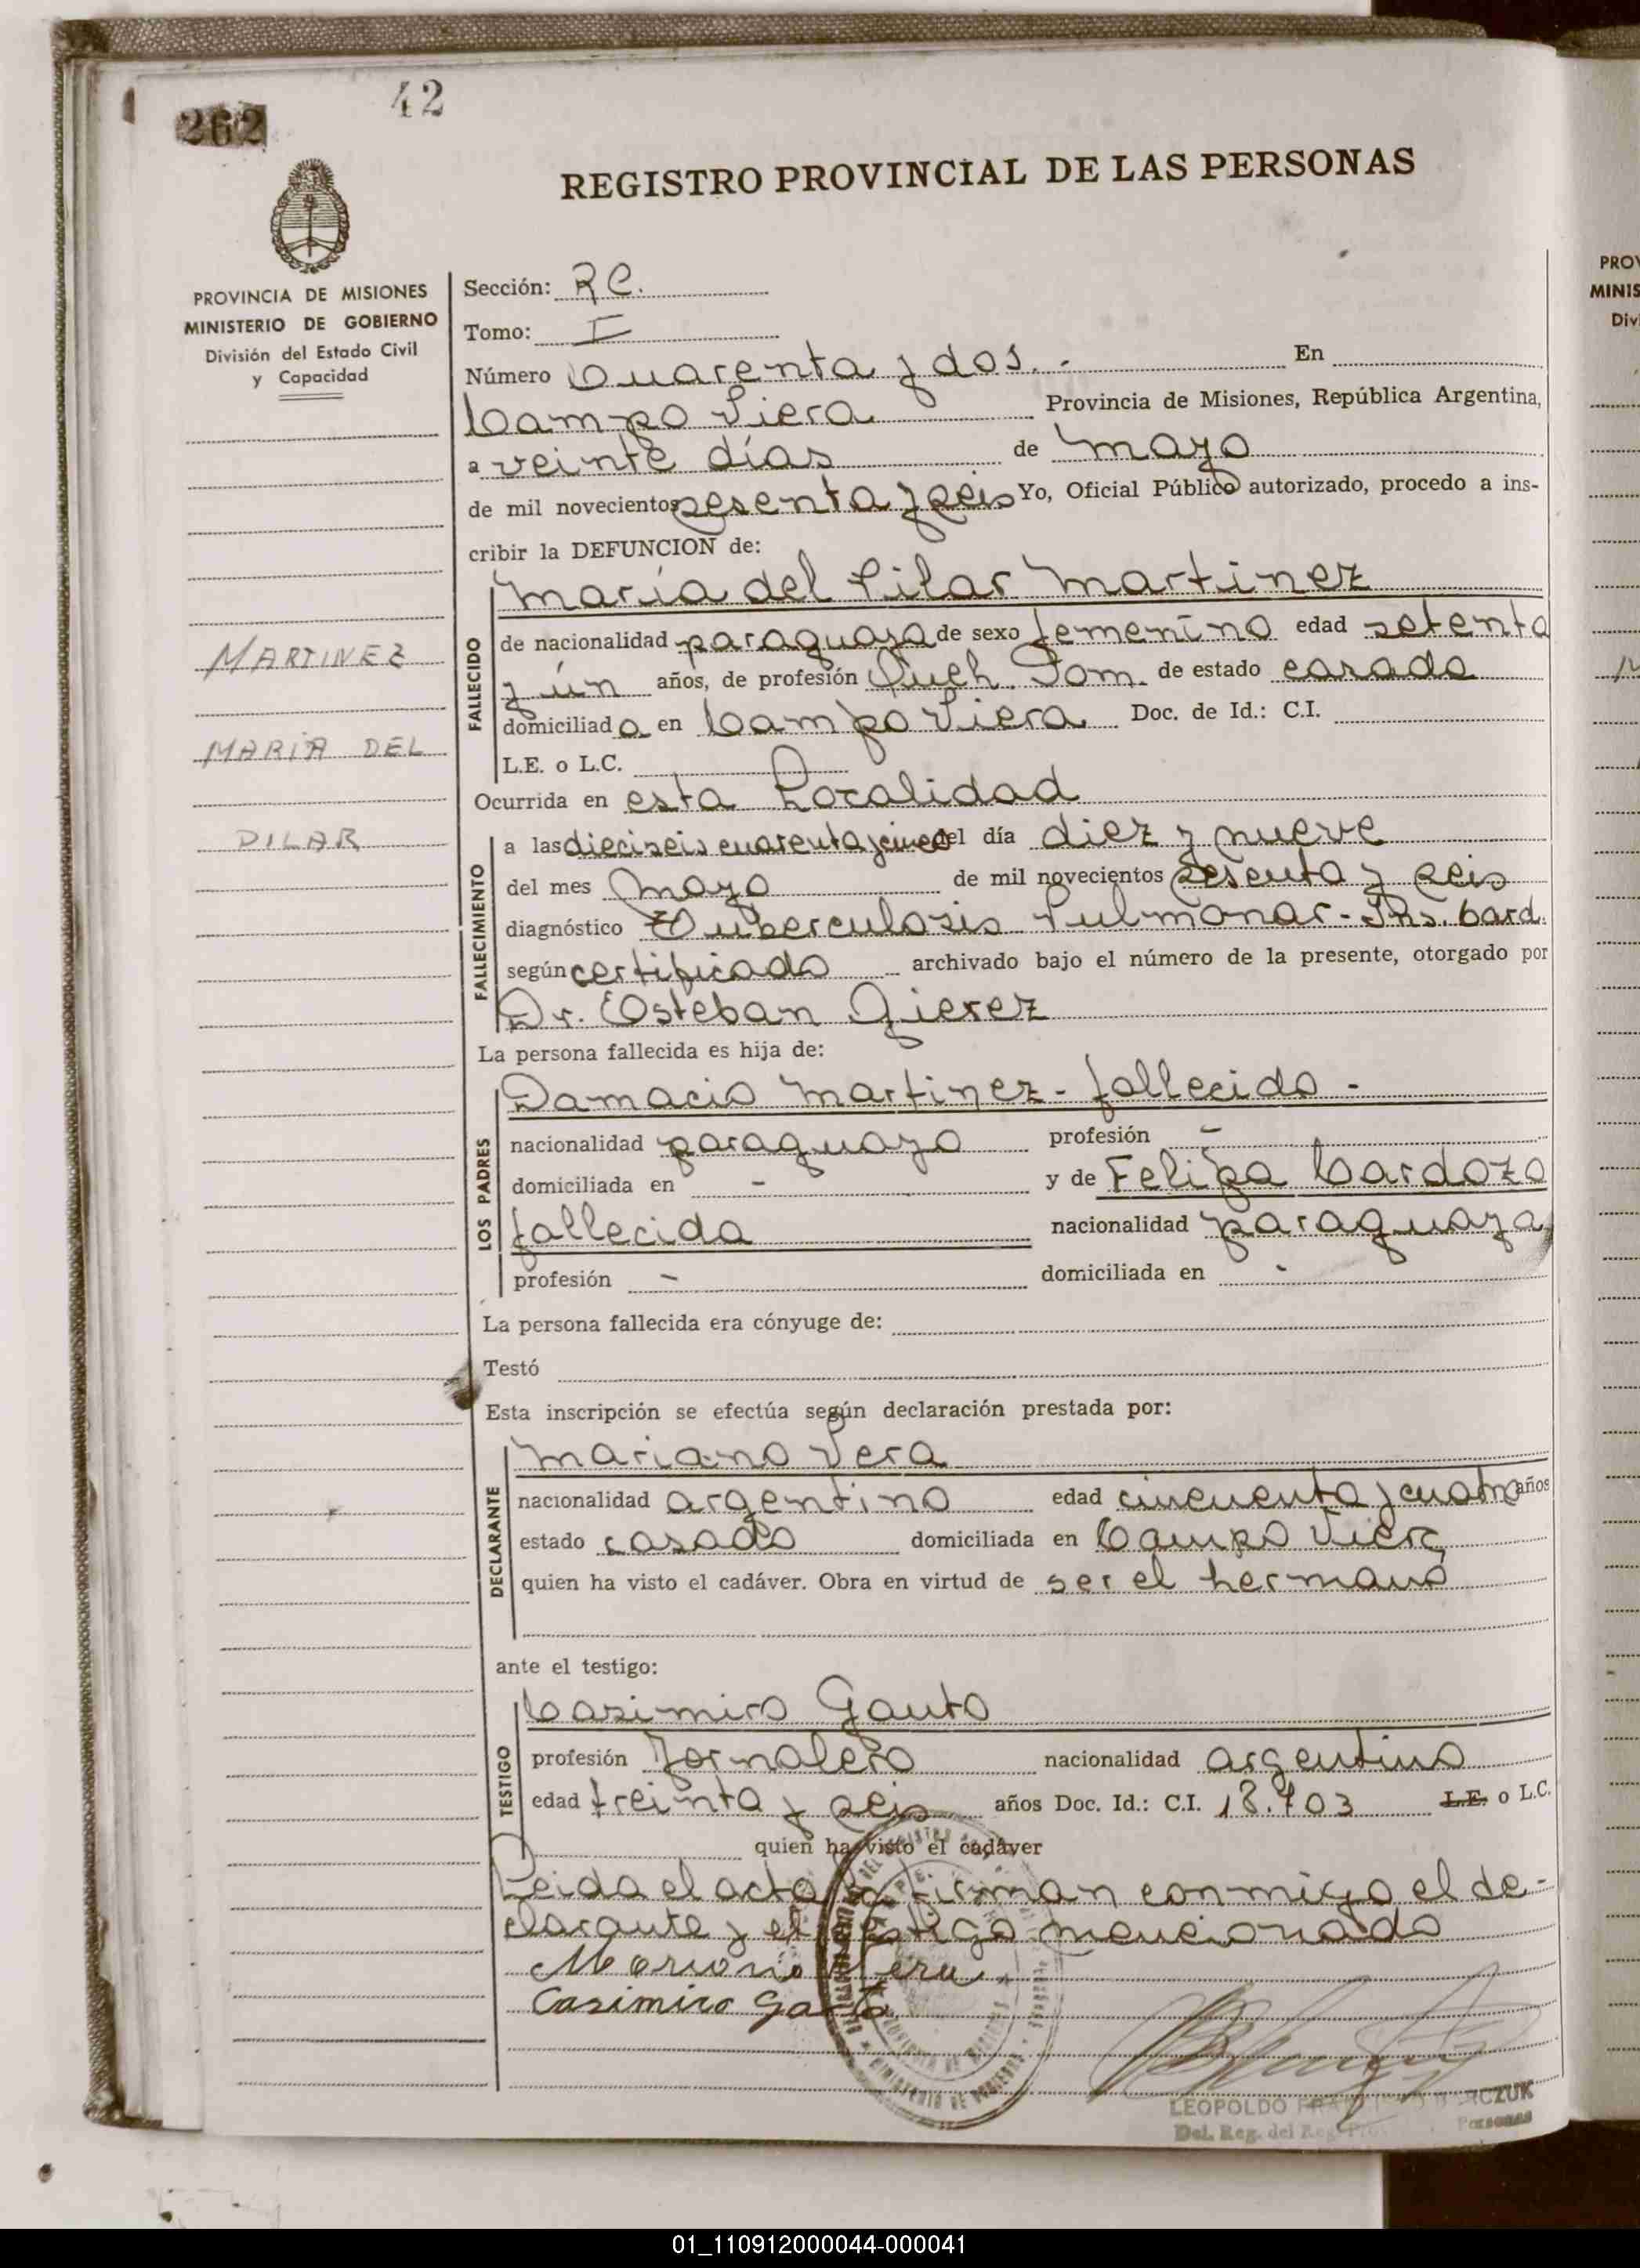 42
262
REGISTRO PROVINCIAL DE LAS PERSONAS
PROVINCIA DE MISIONES
MINISTERIO DE GOBIERNO
División del Estado Civil
y Capacidad
MARTINEZ
MARIA DEL
PILAR
Sección: R C.
Tomo: I
Número Cuarenta y dos. - En
Campo Viera Provincia de Misiones, República Argentina,
a veinte días de mayo
de mil novecientos sesenta y seis Yo, Oficial Público autorizado, procedo a ins-
cribir la DEFUNCION de:
FALLECIDO
María del Pilar Martinez
de nacionalidad paraguaya de sexo femenino edad setenta
y ún años, de profesión Queh. Dom. de estado casada
domiciliada en Campo Viera Doc. de Id.: C.I.
L.E. o L.C.
Ocurrida en esta Localidad
FALLECIMIENTO
a las dieciseis cuarenta y cinco del día diez y nueve
del mes Mayo de mil novecientos sesenta y seis
diagnóstico Tuberculosis Pulmonar - Ins. Card.
según certificado archivado bajo el número de la presente, otorgado por
Dr. Esteban Gierez
La persona fallecida es hija de:
LOS PADRES
Damacio Martinez - fallecido -
nacionalidad paraguayo profesión -
domiciliada en - y de Felipa Cardozo
fallecida nacionalidad paraguaya
profesión - domiciliada en -
La persona fallecida era cónyuge de:
Testó
Esta inscripción se efectúa según declaración prestada por:
DECLARANTE
Mariano Vera
nacionalidad argentino edad cincuenta y cuatro años
estado casado domiciliada en Campo Viera
quien ha visto el cadáver. Obra en virtud de ser el hermano
ante el testigo:
TESTIGO
Casimiro Gauto
profesión Jornalero nacionalidad argentino
edad treinta y seis años Doc. Id.: C.I. 18.403 L.E. o L.C.
quien ha visto el cadáver
Leida el acta la firman conmigo el de-
clarante y el testigo mencionado
Mariano Vera
Casimiro Gauto
LEOPOLDO
Del. Reg. del Reg. Personas
PROV
MINIS
Divi
01_110912000044-000041